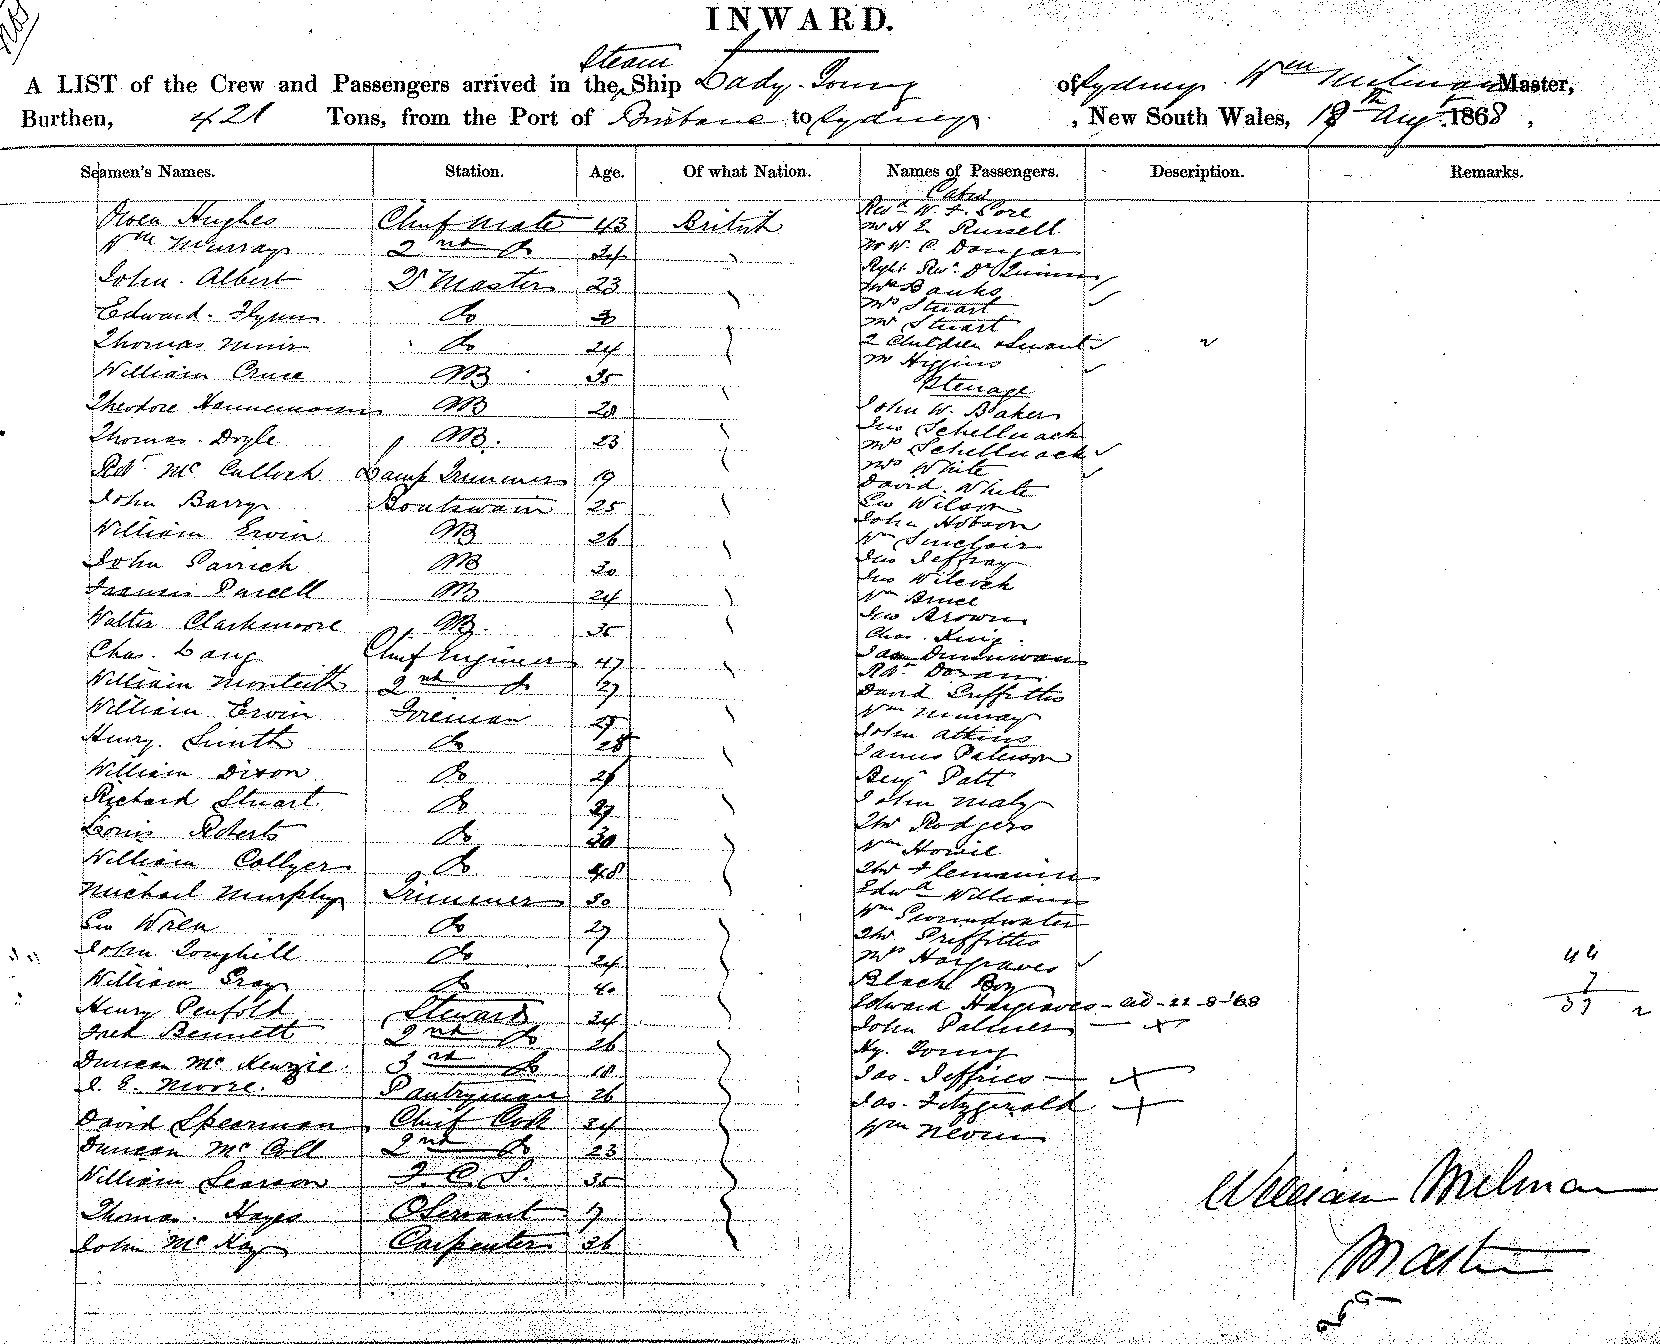 INWARD.
A LIST of the Crew and Passengers arrived in the Steam Ship Lady Young of Sydney. Wm Milman Master,
Burthen, 421 Tons, from the Port of Brisbane to Sydney , New South Wales, Augt 1868 ,
Seamen's Names. Station. Age. Of what Nation. Names of Passengers. Description. Remarks.
Owen Hughes Chief Mate 43 British
Wm Murray 2nd Do 24
John Albert Qr Master 23
Edward Flynn Do
Thomas Muir Do 24
William Cruse AB 35
Theodore Hannemann AB 28
Thomas Doyle AB. 23
Robt McCulloch Lamp Trimmer 19
John Barry Boatswain 25
William Ervin AB 26
John Parrick AB 30
Francis Purcell AB 24
Walter Clackmoore AB. 35
Chas. Lang Chief Engineer 47
William Monteith 2nd Do 27
William Ervin Fireman
Henry Smith Do 28
William Dixon Do 26
Richard Stuart Do
Louis Roberts Do 30
William Collyer Do 48
Michael Murphy Trimmer 30
Geo Wren Do 27
John Toughill Do 24
William Gray Do 40
Henry Penfold Steward 34
Fred Bennett 2nd Do 26
Duncan McKenzie 3rd Do 18
Moore. Pantryman 26
David Spearman Chief Cook 34
Duncan McColl 2nd Do 23
William Searson F. C. S. 35
Thomas Hayes O Servant 17
John McKay Carpenter 36
Cabin
Revd W. F. Gore
Mr H E Russell
Mr W. C. Dangar
Right Revd Dr Quinn
Banks
Mrs Stuart
Mr Stuart
2 Children & Servant
Mr Higgins
Steerage
John W. Baker
Jno Schellnack
Mrs Schellnack
Mrs White
David White
Geo Wilson
John Hobson
Wm Sinclair
Jno Jeffray
Jno Wilcock
Wm Bruce
Jno Brown
Chas. King
Dunnwan
Robt Doran
David Griffiths
Wm Murray
John Atkins
James Paterson
Benj Patt
John Maly
Thos Rodgers
Wm Howie
Thos Flemming
Edwd Williams
Wm Groundwater
Thos Griffiths
Mrs Hargraves
Black Boy
Edward Hargraves - ad - 22-8-'68
John Palmer
Hy. Young
Jas. Jeffries
Jas. Fitzgerald
Wm Nevin
44
7
William Milman
Master